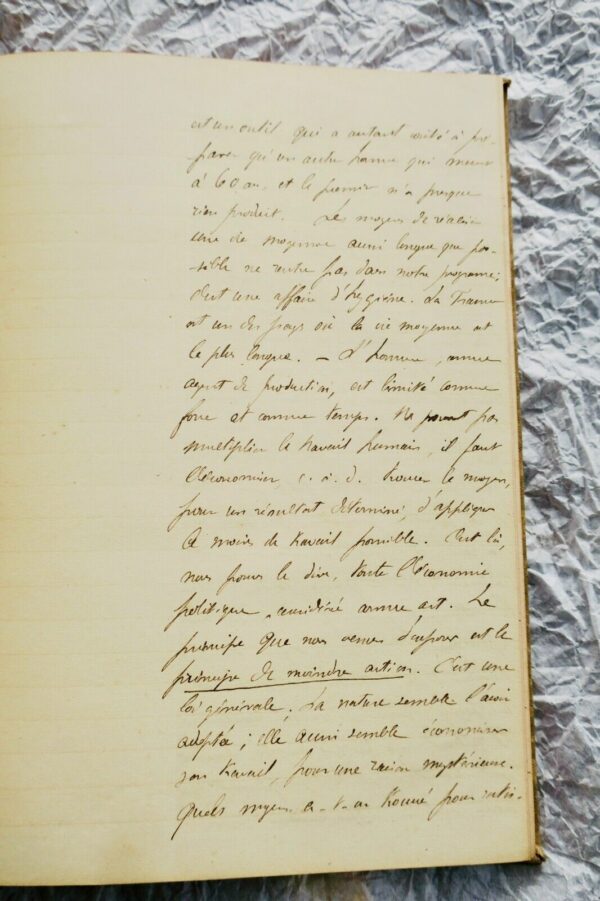 est un outil qui a autant coûté à pré-
-parer qu'un autre homme qui meurt
à 60 ans, et le premier n'a presque
rien produit. Le moyen de réaliser
une vie moyenne aussi longue que pos-
-sible ne rentre pas dans notre programme;
c'est une affaire d'hygiène. La France
est un des pays où la vie moyenne est
le plus longue. — L'homme, comme
agent de production, est limité comme
force et comme temps. Ne pouvant pas
multiplier le travail humain, il faut
l'économiser c. à. d. trouver le moyen,
pour un résultat déterminé, d'appliquer
le moins de travail possible. C'est là,
nous pouvons le dire, toute l'économie
politique, considérée comme art. Le
principe que nous venons d'exposer est le
principe de moindre action. C'est une
loi générale. La nature semble l'avoir
adoptée; elle aussi semble économiser
son travail, pour une raison mystérieuse.
Quels moyens a-t-on trouvé pour